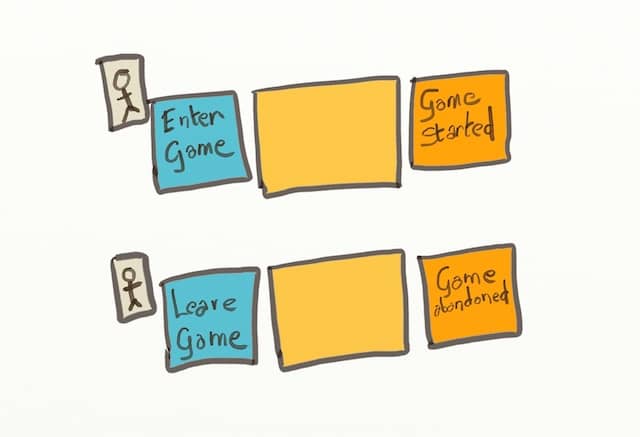 Enter
Game
Game
Started
Leave
Game
Game
abandoned